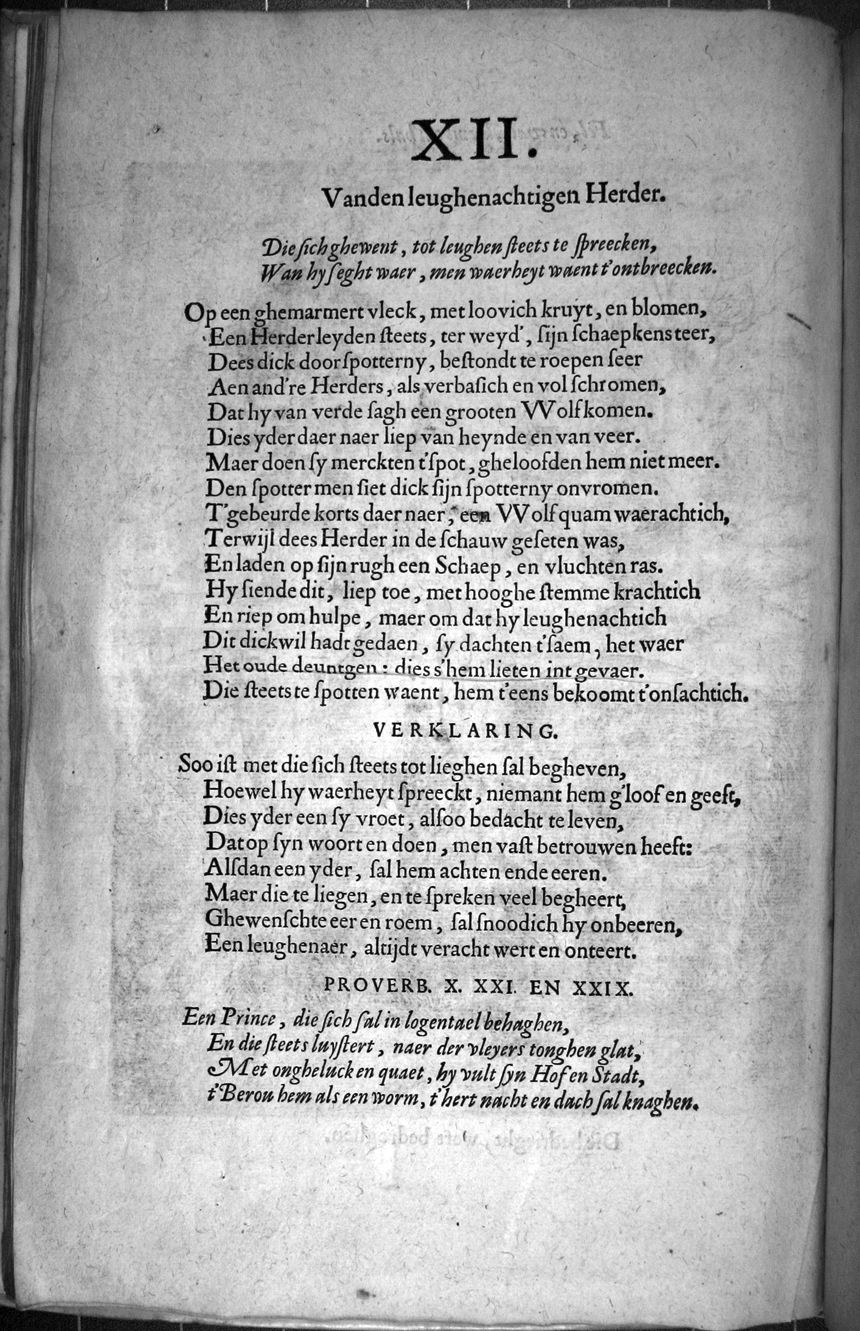 XII.
Vanden leughenachtigen Herder.
Die ſich ghewent, tot leughen ſteets te ſpreecken,
Wan hy ſeght waer, men waerheyt waent t'ontbreecken.
Op een ghemarmert vleck, met loovich kruyt, en blomen,
Een Herder leyden ſteets, ter weyd', ſijn ſchaepkens teer,
Dees dick door ſpotterny, beſtondt te roepen ſeer
Aen and're Herders, als verbaſich en vol ſchromen,
Dat hy van verde ſagh een grooten VVolf komen.
Dies yder daer naer liep van heynde en van veer.
Maer doen ſy merckten t'ſpot, gheloofden hem niet meer.
Den ſpotter men ſiet dick ſijn ſpotterny onvromen.
T'gebeurde korts daer naer, een VVolf quam waerachtich,
Terwijl dees Herder in de ſchauw geſeten was,
En laden op ſijn rugh een Schaep, en vluchten ras.
Hy ſiende dit, liep toe, met hooghe ſtemme krachtich
En riep om hulpe, maer om dat hy leughenachtich
Dit dickwil hadt gedaen, ſy dachten t'ſaem, het waer
Het oude deuntgen: dies s'hem lieten int gevaer.
Die ſteets te ſpotten waent, hem t'eens bekoomt t'onſachtich.
VERKLARING.
Soo iſt met die ſich ſteets tot lieghen ſal begheven,
Hoewel hy waerheyt ſpreeckt, niemant hem g'loof en geeft,
Dies yder een ſy vroet, alſoo bedacht te leven,
Dat op ſyn woort en doen, men vaſt betrouwen heeft:
Alſdan een yder, ſal hem achten ende eeren.
Maer die te liegen, en te ſpreken veel begheert,
Ghewenſchte eer en roem, ſal ſnoodich hy onbeeren,
Een leughenaer, altijdt veracht wert en onteert.
PROVERB. X. XXI. EN XXIX.
Een Prince, die ſich ſal in logentael behaghen,
En die ſteets luyſtert, naer der vleyers tonghen glat,
Met ongheluck en quaet, hy vult ſyn Hof en Stadt,
t'Berou hem als een worm, t'hert nacht en dach ſal knaghen.